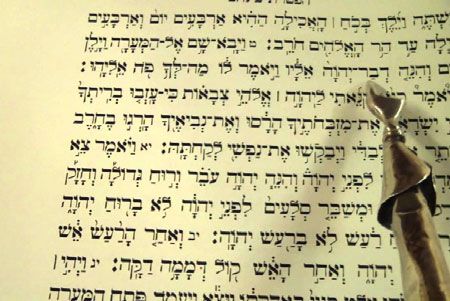 וַיֵּלֶךְ בְּכֹחַ | הָאֲכִילָה הַהִיא אַרְבָּעִים יוֹם וְאַרְבָּעִים
עַד הַר הָאֱלֹהִים חֹרֵב: ט וַיָּבֹא־שָׁם אֶל־הַמְּעָרָה וַיָּלֶן
וְהִנֵּה דְבַר־יְהוָה אֵלָיו וַיֹּאמֶר לוֹ מַה־לְּךָ פֹה אֵלִיָּהוּ:
לַיהוָה | אֱלֹהֵי צְבָאוֹת כִּי־עָזְבוּ בְרִיתְךָ
אֶת־מִזְבְּחֹתֶיךָ הָרָסוּ וְאֶת־נְבִיאֶיךָ הָרְגוּ בֶחָרֶב
וַיְבַקְשׁוּ אֶת־נַפְשִׁי לְקַחְתָּהּ: יא וַיֹּאמֶר צֵא
לִפְנֵי יְהוָה וְהִנֵּה יְהוָה עֹבֵר וְרוּחַ גְּדוֹלָה וְחָזָק
וּמְשַׁבֵּר סְלָעִים לִפְנֵי יְהוָה לֹא בָרוּחַ יְהוָה
רַעַשׁ לֹא בָרַעַשׁ יְהוָה: יב וְאַחַר הָרַעַשׁ אֵשׁ
יְהוָה וְאַחַר הָאֵשׁ קוֹל דְּמָמָה דַקָּה: יג וַיְהִי |
וַיֵּצֵא וַיַּעֲמֹד פֶּתַח הַמְּעָרָה